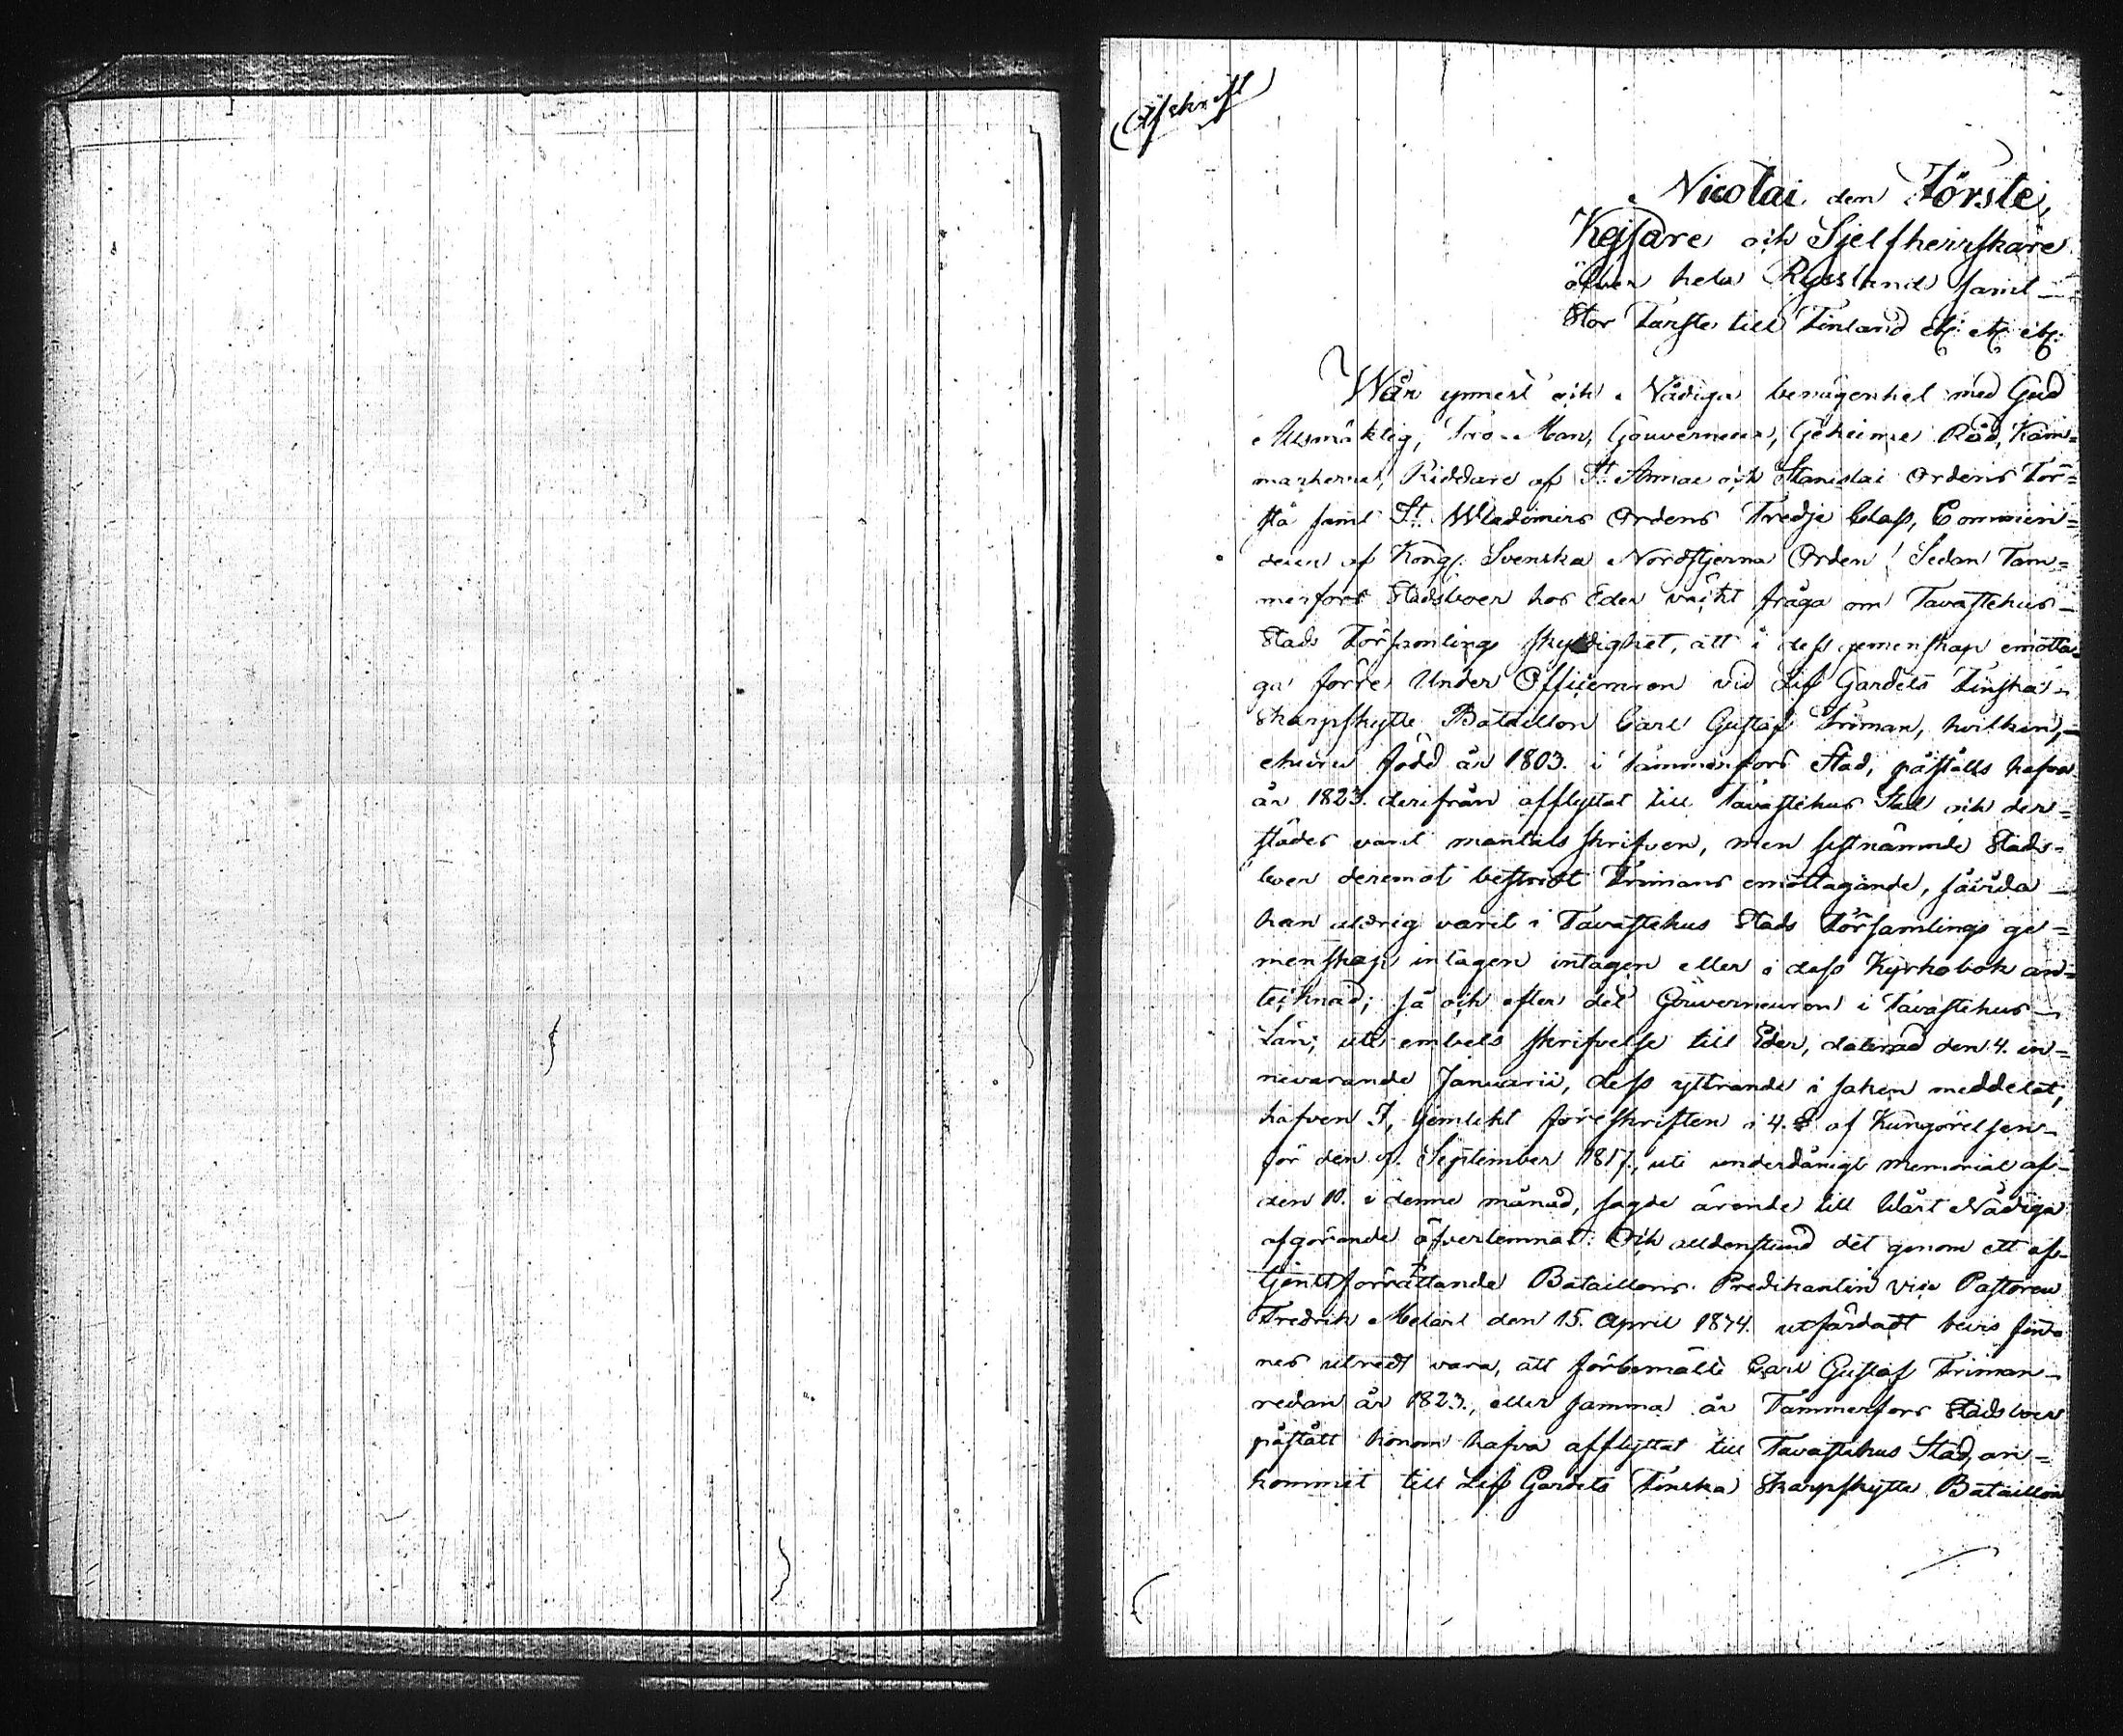 Afskrift
Nicolai den Förste,
Kejsare och Sjelfherrskare
öfver hela Ryssland samt
Stor Furste till Finland etc. etc. etc.
Wår ynnest och Nådiga benägenhet med Gud
Allsmäktig, Tro-Man, Gouverneur, Geheime Råd, Kam=
marherre, Riddare af St. Annae och Stanislai Ordens För=
sta samt St. Wladimirs Ordens Tredje Class, Commen=
deur af Kongl. Svenska Nordstjerna Orden! Sedan Tam=
merfors Stadsboer hos Eder väckt fråga om Tavastehus
Stads Församlings skyldighet, att i dess gemenskap emotta-
ga förre Under Officeraren vid Lif Gardets Finska
Skarpskytte Bataillon Carl Gustaf Friman, hvilken,
ehuru född år 1803. i Tammerfors Stad, påståtts hafva
år 1823. derifrån afflyttat till Tavastehus Stad och der=
städes varit mantals skrifven, men sistnämnde Stads=
boer deremot bestridt Frimans emottagande, såvida
han aldrig varit i Tavastehus Stads Församlings ge=
menskap intagen intagen eller i dess Kyrkobok an=
tecknad; så och efter det Gouverneuren i Tavastehus
Län, uti embets skrifvelse till Eder, daterad den 4. in=
nevarande Januarii, dess yttrande i saken meddelat,
hafven I, gemlikt föreskriften i 4. § af Kungörelsen
för den 9. September 1817, uti underdånigt memorial af
den 10. i denne månad, sagde ärende till Wårt Nådiga
afgörande öfverlemnat. Och alldenstund det genom ett af
tjenstförrättande Bataillons Predikanten Vice Pastoren
Fredrik Melart den 15. April 1874. utfärdadt bevis fin-
nes utredt vara, att förbemälte Carl Gustaf Friman
redan år 1823., eller samma år Tammerfors Stadsboer
påstått honom hafva afflyttat till Tavastehus Stad, an=
kommit till Lif Gardets Finska Skarpskytte Bataillon